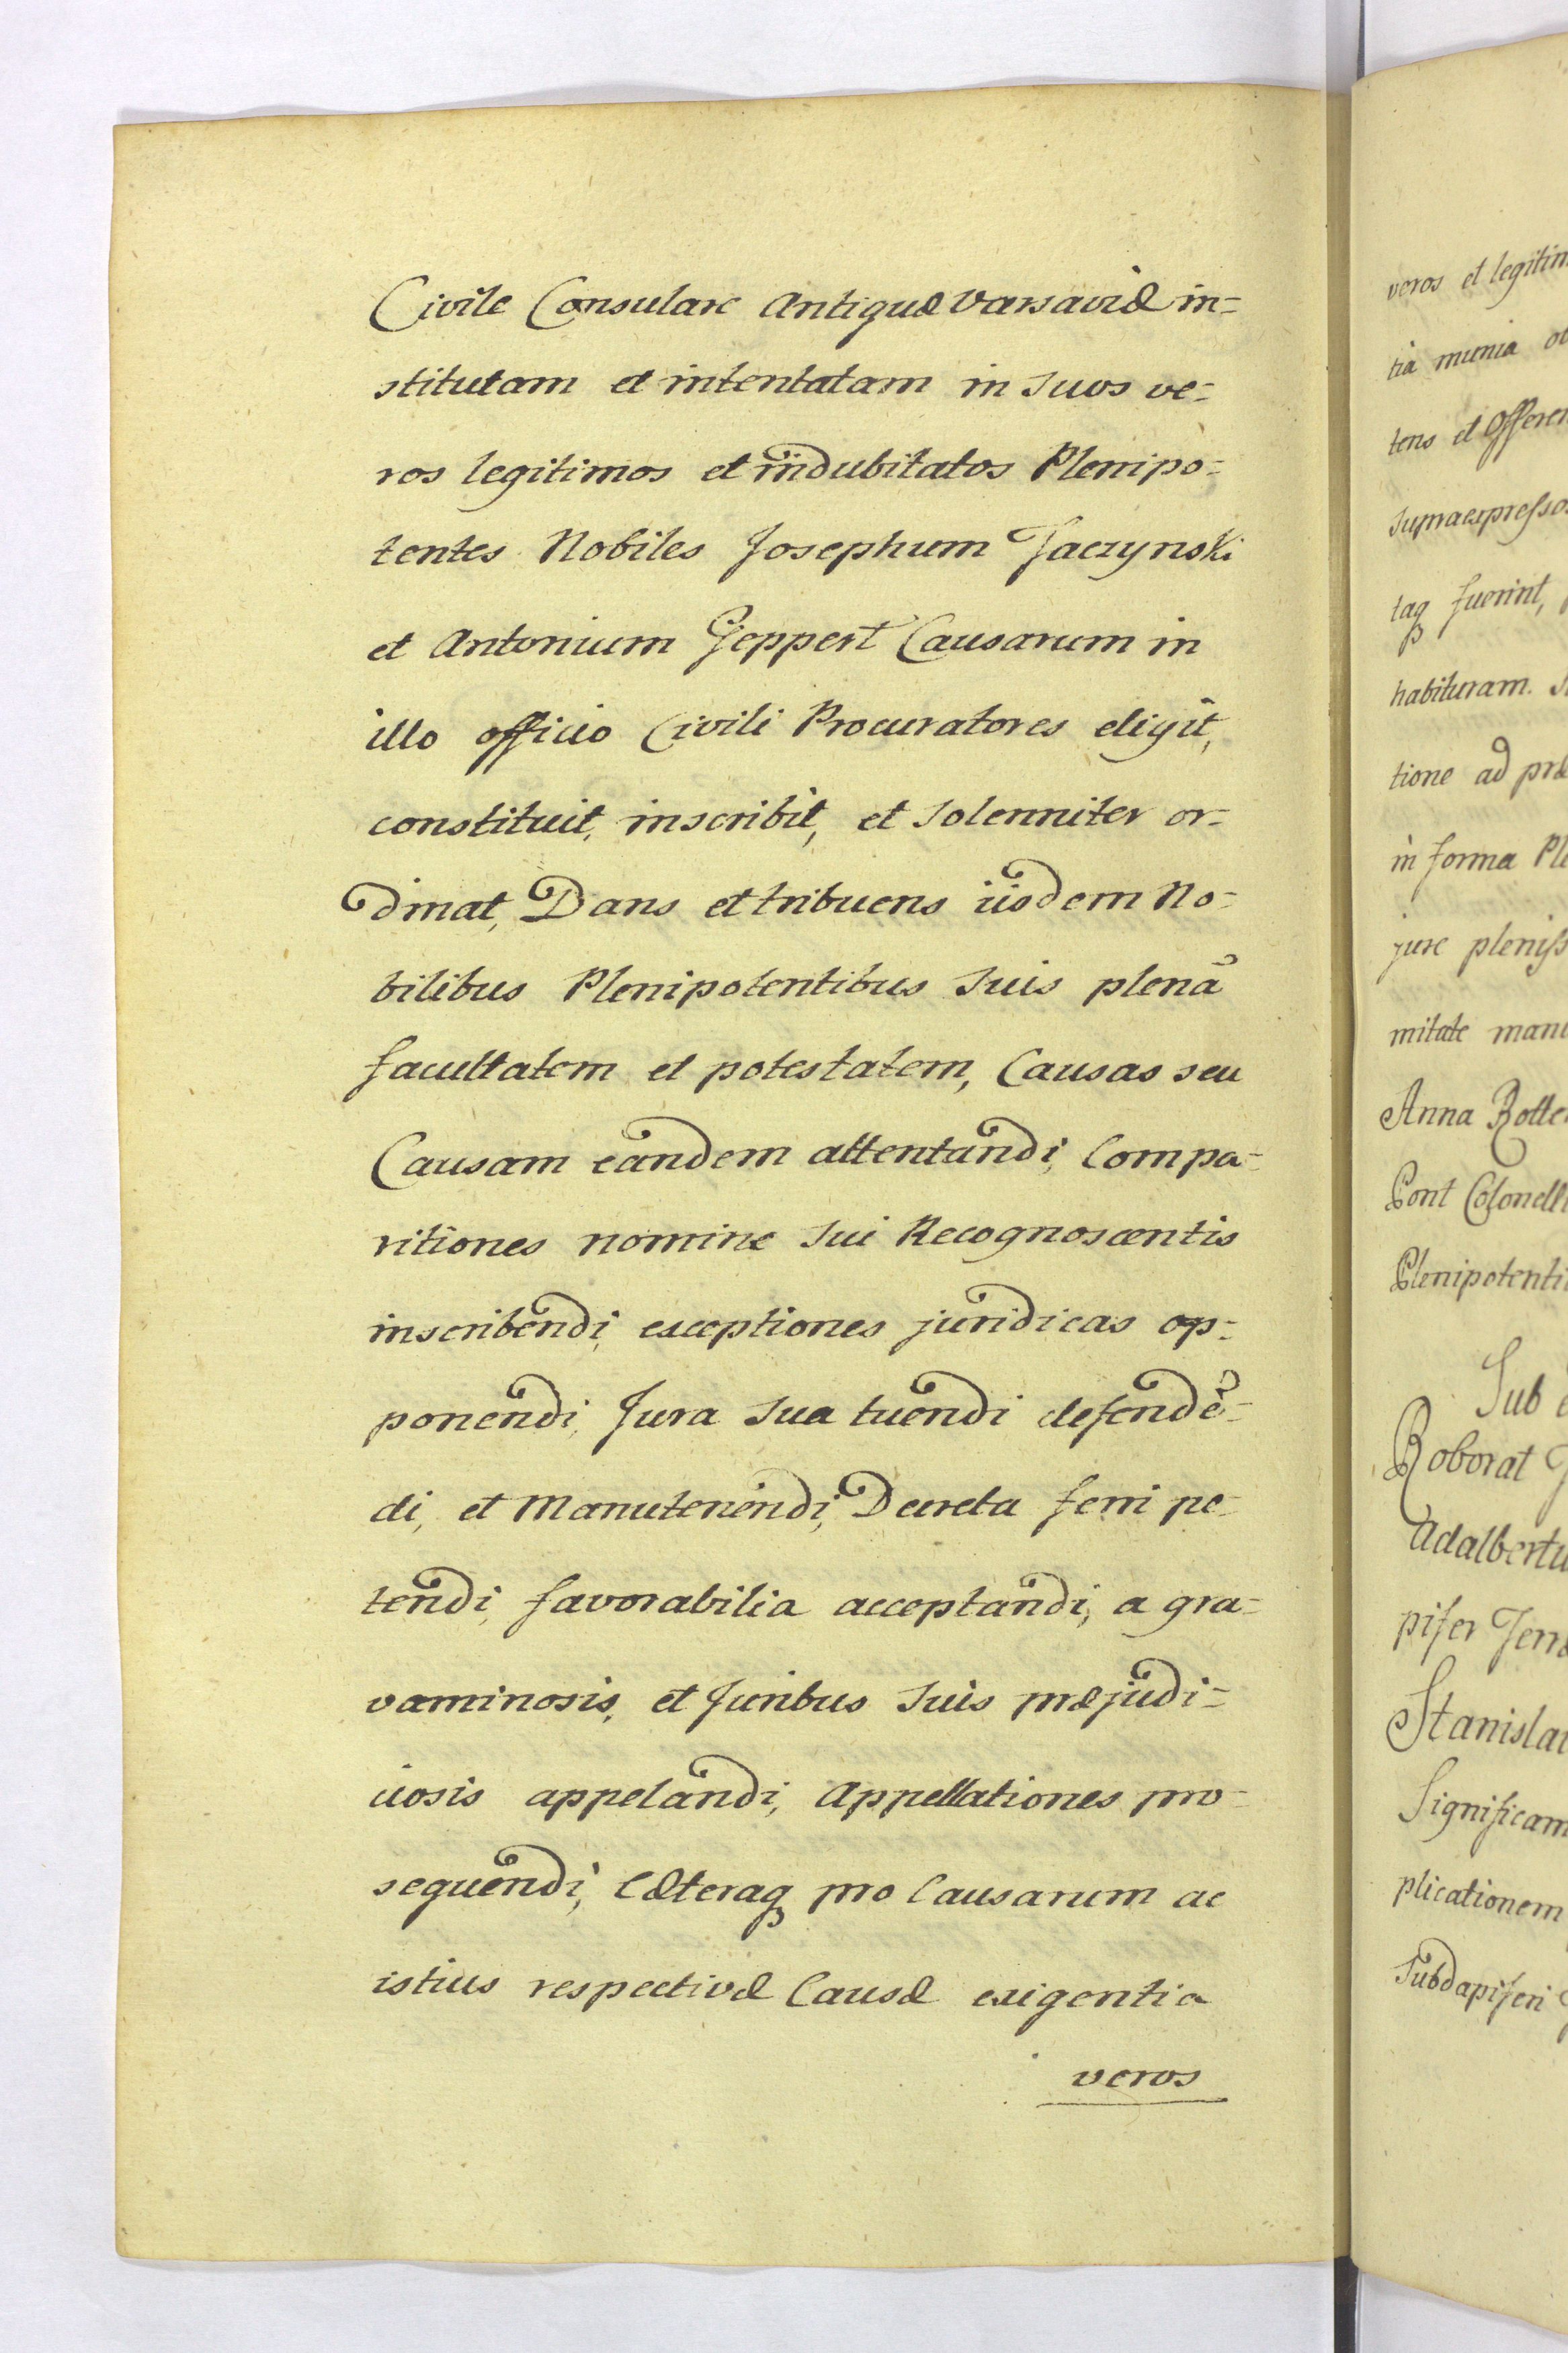 Civile Consulare Antiquæ Varsaviæ in=
stitutam et intentatam in Suos ve=
ros legitimos et indubitatos Plenipo=
tentes Nobiles Josephum Jaczynski
et Antonium Geppert Causarum in
illo officio Civili Procuratores eligit,
constituit, inscribit, et Solenniter or=
dinat, Dans et tribuens iisdem No=
bilibus Plenipotentibus Suis plenã
facultatem et potestatem, Causas seu
Causam eandem attentandi, Compa=
ritiones nomine Sui Recognoscentis
inscribendi, exceptiones juridicas op=
ponendi, Jura Sua tuendi defendẽ=
di, et Manutenendi, Decreta ferri pe=
tendi, favorabilia acceptandi, a gra=
vaminosis, et Juribus Suis præjudi=
ciosis appelandi, Appellationes pro=
sequendi, Cæteraq pro Causarum ac
istius respectivæ Causæ exigentia
veros
veros et legitim
tia munia
tens et Offeren
supraexpresso
taq fuerint,
habituram.
tione ad præ
in forma Ple
jure pleniss
mitate man
Anna
Pont Colonelli
Plenipotenti
Sub
Roborat
Adalbertu
pifer Terræ
Stanislau
Significam
plicationem
Subdapiferi